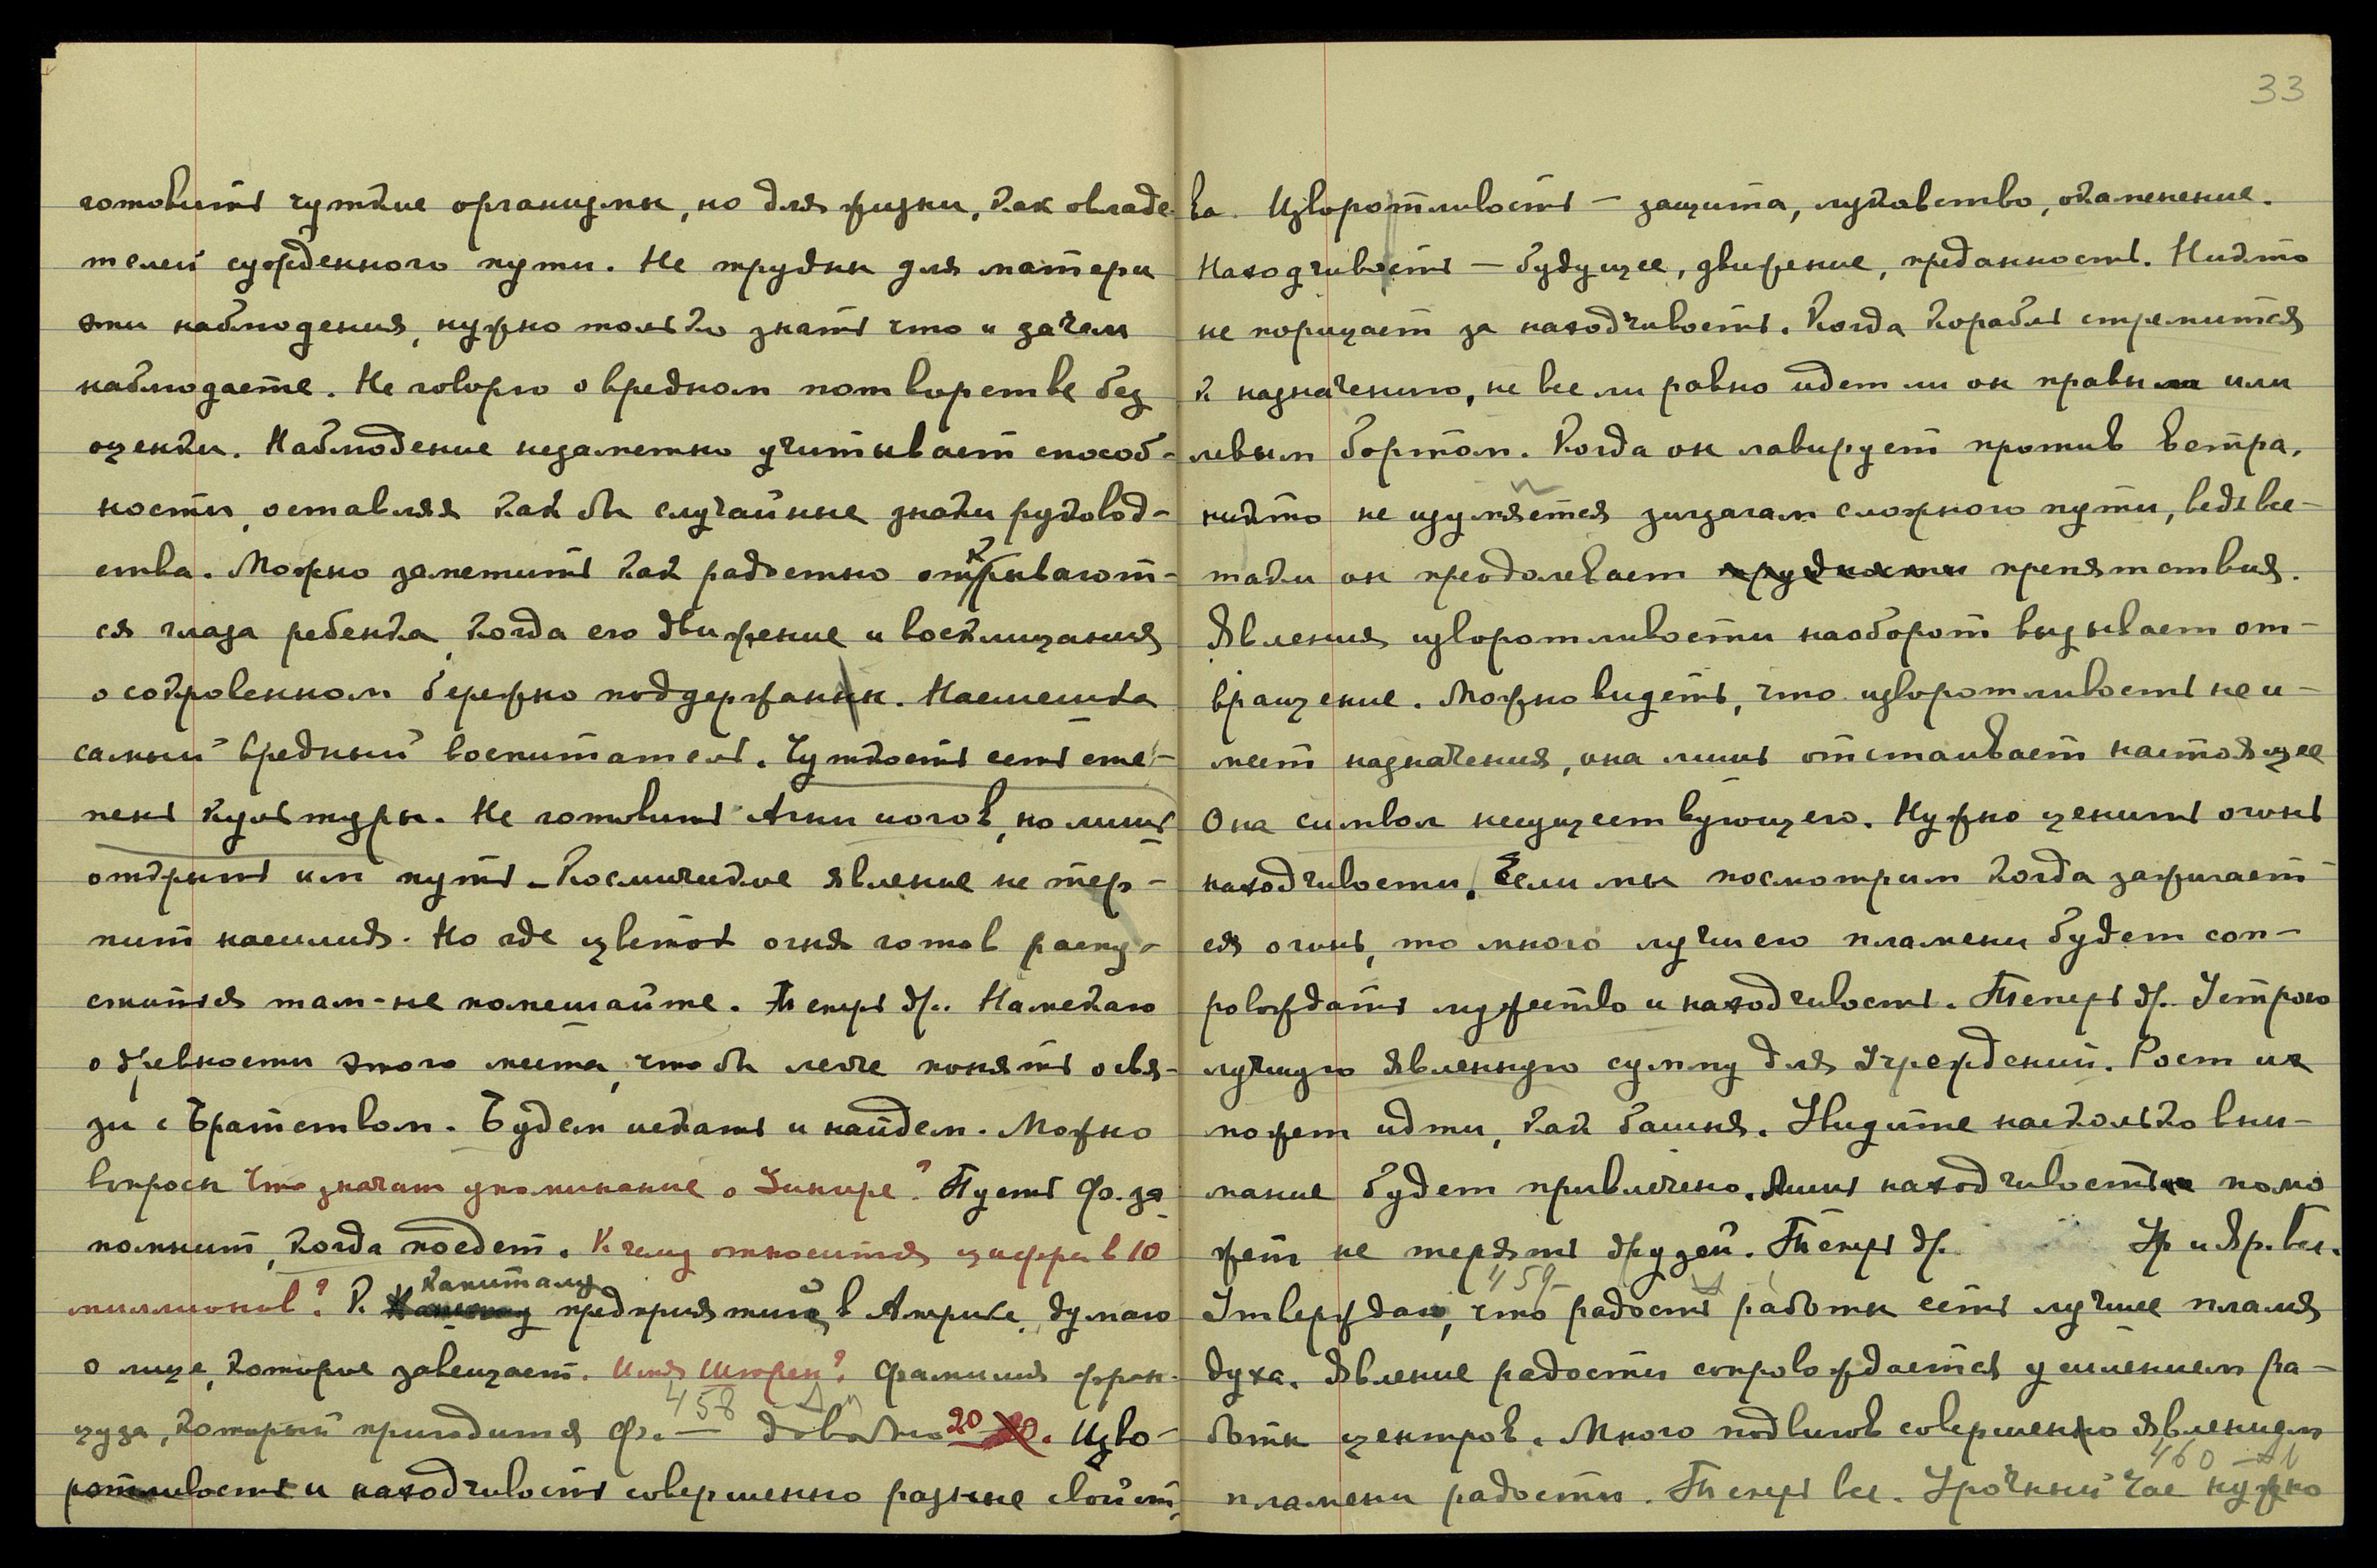 33
готовить чуткие организмы, но для жизни, как овладе-
телей сужденного пути. Не трудны для матери
эти наблюдения, нужно только знать что и зачем
наблюдаете. Не говорю о вредном потворстве без
оценки. Наблюдение незаметно учитывает способ-
ности, оставляя как бы случайные знаки руковод-
ства. Можно заметить как радостно открывают-
ся глаза ребенка, когда его движение и восклицания
о сокровенном бережно поддержаны. Насмешка
самый вредный воспитатель. Чуткость есть сте-
пень культуры. Не готовить Агни иогов, но лишь
открыть им путь. Космическое явление не тер-
пит насилия. Но где цветок огня готов распу-
ститься там-не помешайте. Теперь др. Намекаю
о древности этого места, чтобы легче понять о свя-
зи с Братством. Будем искать и найдем. Можно
вопросы Что значит упоминание о ? Пусть Ф. за
помнит, когда поедет. К чему относится цифра в 10
миллионов? К
Капиталу
предприятий в Америке, думаю
о лице, которое завещает. Имя ? Фамилия фран-
цуза, который пригодится Ф. — Довольно 20.
458
Изво-
ротливость и находчивость совершенно разные свойст-
ва. Изворотливость — защита, лукавство, окаменение.
Находчивость — будущее, движение, преданность. Никто
не порицает за находчивость. Когда корабль стремится
к назначению, не все ли равно идет ли он правым или
левым бортом. Когда он лавирует против ветра,
никто не изумляется зигзагам сложного пути, ведь все-
таки он преодолевает трудности препятствия.
Явления изворотливости наоборот вызывает от-
вращение. Можно видеть, что изворотливость не и-
меет назначения, она лишь отстаивает настоящее
Она символ несуществующего. Нужно ценить огонь
находчивости. Если мы посмотрим когда зажигает
ся огонь, то много лучшего пламени будет соп-
ровождать мужество и находчивость. Теперь др. Устрою
лучшую явленную сумму для Учреждений. Рост их
может идти, как башня. Увидите насколько вни-
мание будет привлечено. Лишь находчивость помо
жет не терять друзей. Теперь др. Ур и Яр. вы.
459
Утверждаю, что радость работы есть лучшее пламя
духа. Явление радости сопровождается усилением ра-
боты центров. Много подвигов совершено явлением
460
пламени радости. Теперь все. Урочный час нужно